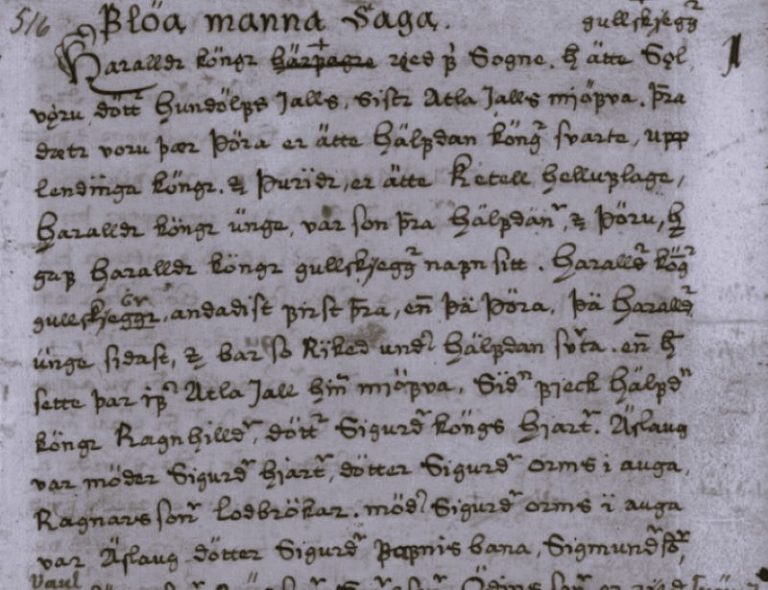 516 Flöa manna Saga. gullskjeggr 1
Haralldr köngr härfagre ried f Sogne. h ätte Söl
vöru dött Hundölfs Jalls, sistr Atla Jalls miöfva. þra
dætr voru þær Þöra er ätte Hälfdan köngr svarte, upp
lendinga köngr. & Þuriidr, er ätte Ketell helluflage,
Haralldr köngr ünge, var son þra Hälfdanr & Þöru, h
gaf Haralldr köngr gullskjeggr nafn sitt. Haralldr köngr
gullskjeggr, andadist first þra, en̄ þä Þöra, þä Haralldr
ünge sidast, & bar so Riked und Hälfdan svta. en̄ h
sette þar ifr Atla Jall hin miöfva. Sidn fieck Hälfdn
köngr Ragnhilldr, dött Sigurdr köngs hjartr. Äslaug
var möder Sigurdr hjartr, dötter Sigurdr orms i auga,
Ragnars sonr lodbrökar. möd Sigurdr orms i auga
var Äslaug dötter Sigurdr Fofnis bana, Sigmundr sö